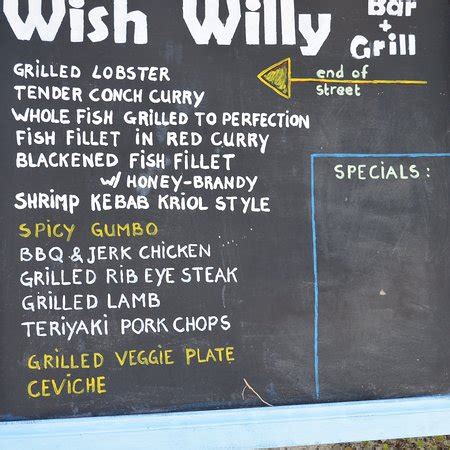 Wish Willy Bar
+
Grill
GRILLED LOBSTER
TENDER CONCH CURRY
WHOLE FISH GRILLED TO PERFECTION
FISH FILLET IN RED CURRY
BLACKENED FISH FILLET
W/ HONEY-BRANDY
SHRIMP KEBAB KRIOL STYLE
SPICY GUMBO
BBQ & JERK CHICKEN
GRILLED RIB EYE STEAK
GRILLED LAMB
TERIYAKI PORK CHOPS
GRILLED VEGGIE PLATE
CEVICHE
end of
street
SPECIALS: